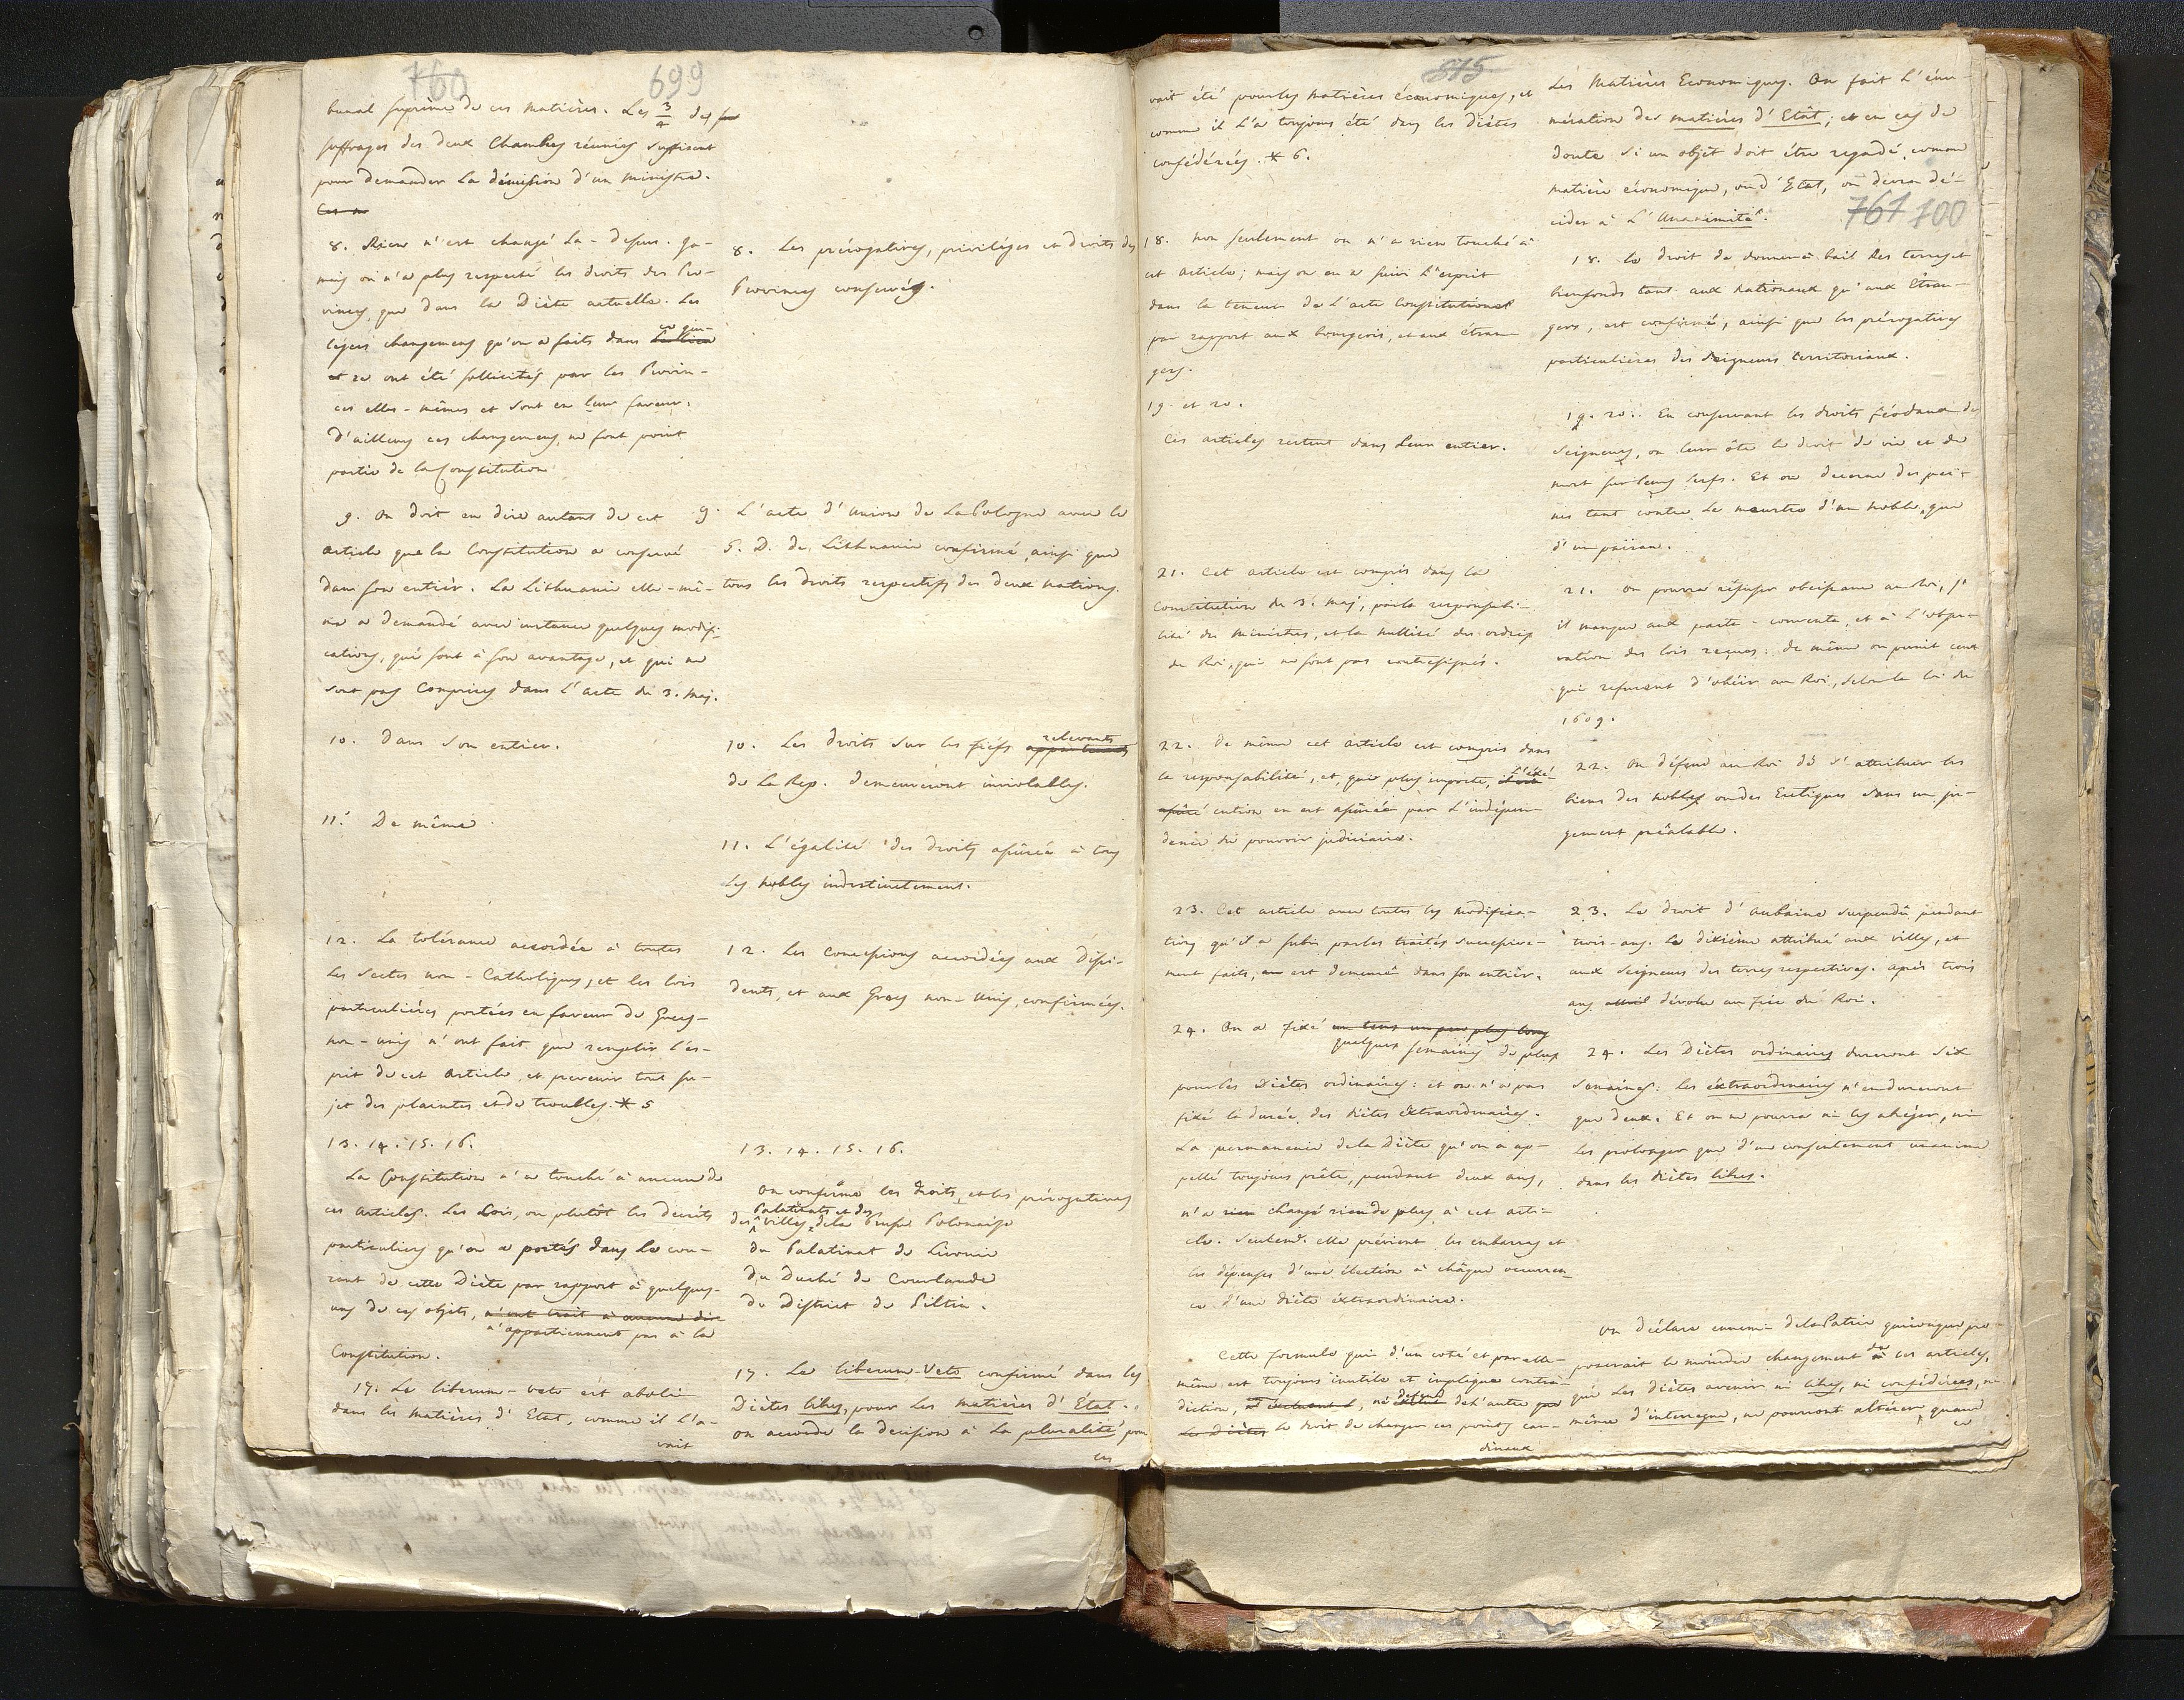 760
699
bunal suprême de ces matières. Les 3/4 des
suffrages des deux Chambres réunies suffisent
pour demander la démission d'un ministre.
8. Rien n'est changé la-dessus. Ja-
mais on n'a plus respecté les droits des Pro-
vinces, que dans la Diète actuelle. Les
légers changemens qu'on a faits dans ce gen-
re ont été sollicités par les Provin-
ces elles-mêmes et sont en leur faveur.
D'ailleurs ces changemens ne font point
partie de la Constitution
9. On doit en dire autant de cet
article que la Constitution a conservé
dans son entier. La Lithuanie elle-mê-
me a demandé avec instance quelques modifi-
cations, qui sont à son avantage, et qui ne
sont pas comprises dans l'acte du 3. Maj.
10. Dans son entier.
11. De même
12. La tolérance accordée à toutes
les sectes non-Catholiques, et les lois
particulières portées en faveur de Grecs-
non-unis n'ont fait que remplir l'es-
prit de cet article, et prevenir tout su-
jet des plaintes et de troubles. * 5
13. 14. 15. 16.
La Constitution n'a touché à aucun de
ces articles. Les Lois, ou plutôt les decrets
particuliers qu'on a portés dans le cou-
rant de cette Diète par rapport à quelques-
uns de ces objets, n'ont trait à aucune
n'appartiennent pas à la
Constitution.
17. Le liberum-veto est aboli
dans les matières d'Etat, comme il l'a-
vait
8. Les prérogatives, priviléges et droits des
Provinces conservés.
9. L'acte d'union de la Pologne avec le
G. D. de Lithuanie confirmé, ainsi que
tous les droits respectifs des deux nations.
10. Les droits sur les fiefs relevants
de la Rep. demeureront inviolables.
11. L'égalité des droits assûrée à tous
les nobles indistinctement.
12. Les concessions accordées aux dissi-
dents, et aux Grecs non-unis, confirmées.
13. 14. 15. 16.
On confirme les droits, et les prérogatives
Palatinats et des
des villes de la Prusse Polonaise
du Palatinat de Livonie
du Duché de Courlande
du District de Piltin.
17. Le liberum-Veto confirmé dans les
Diètes libres, pour les matières d'Etat.
on accorde la decision à la pluralité pour
les
815
vait été pour les matières économiques, et
comme il l'a toujours été dans les diètes
confédérées. * 6.
18. Non seulement on n'a rien touché à
cet article; mais on en a suivi l'esprit
dans la teneur de l'acte Constitutionel
par rapport aux bourgeois, et aux étran-
gers.
19. et 20.
Ces articles restent dans leur entier.
21. Cet article est compris dans la
Constitution du 3. Maj, par la responsabi-
lité des ministres, et la nullité des ordres
du Roi, qui ne sont pas contresignés.
22. De même cet article est compris dans
la responsabilité, et, qui plus importe, l'éxé-
cution en est assûrée par l'indépen-
dence du pouvoir judiciaire.
23. Cet article avec toutes les modifica-
tions qu'il a subis par les traités successive-
ment faits, est demeuré dans son entier.
24. On a fixé un tems un peu plus long
quelques semaines de plus
pour les Diètes ordinaires: et on n'a pas
fixé la durée des diètes éxtraordinaires.
La permanence de la Diète qu'on a ap-
pellé toujours prête, pendant deux ans,
n'a rien changé rien de plus à cet arti-
cle. Seulemt. elle prévient les embarras et
les dépenses d'une élection à châque occurren-
ce d'une diète éxtraordinaire.
Cette formule qui d'un coté et par elle-
même est toujours inutile et implique contra-
diction, ne defend de l'autre
les Diètes le droit de changer ces points car-
dinaux
Les Matières Economiques. On fait l'énu-
mération des matières d'Etât; et en cas de
doute si un objet doit être regardé comme
matière économique, ou d'Etat, on devra dé-
cider à l'Unanimité.
761 700
18. le droit de donner à bail les terres et
bienfonds tant aux nationaux qu'aux étran-
gers, est confirmé, ainsi que les prérogatives
particulières des Seigneurs territoriaux.
19. 20. En conservant les droits féodaux des
Seigneurs, on leur ôte le droit de vie et de
mort sur leurs serfs. Et on decerne des pei-
nes tant contre le meurtre d'un noble, que
d'un païsan.
21. On pourra réfuser obeissance au Roi, s'
il manque aux pacta-conventa, et à l'obser-
vation des lois reçues: de même on punit ceux
qui refusent d'obéir au Roi, selon la loi de
1609.
22. On défend au Roi de s'attribuer les
biens des nobles ou des Eutiques sans un ju-
gement préalable.
23. Le droit d'aubaine suspendû pendant
trois ans. Le dixième attribué aux villes, et
aux Seigneurs des terres respectives. après trois
ans dévolu au fisc du Roi.
24. Les Diètes ordinaires dureront six
semaines: les éxtraordinaires n'en dureront
que deux. Et on ne pourra ni les abréger, ni
les prolonger que d'un consentement unanime
dans les diètes libres.
On déclare ennemi de la Patrie quiconque pro-
poserait le moindre changement de ces articles,
que les diètes avenir ni libres, ni confédérées, ni
même d'interregne, ne pourront altérer, quand